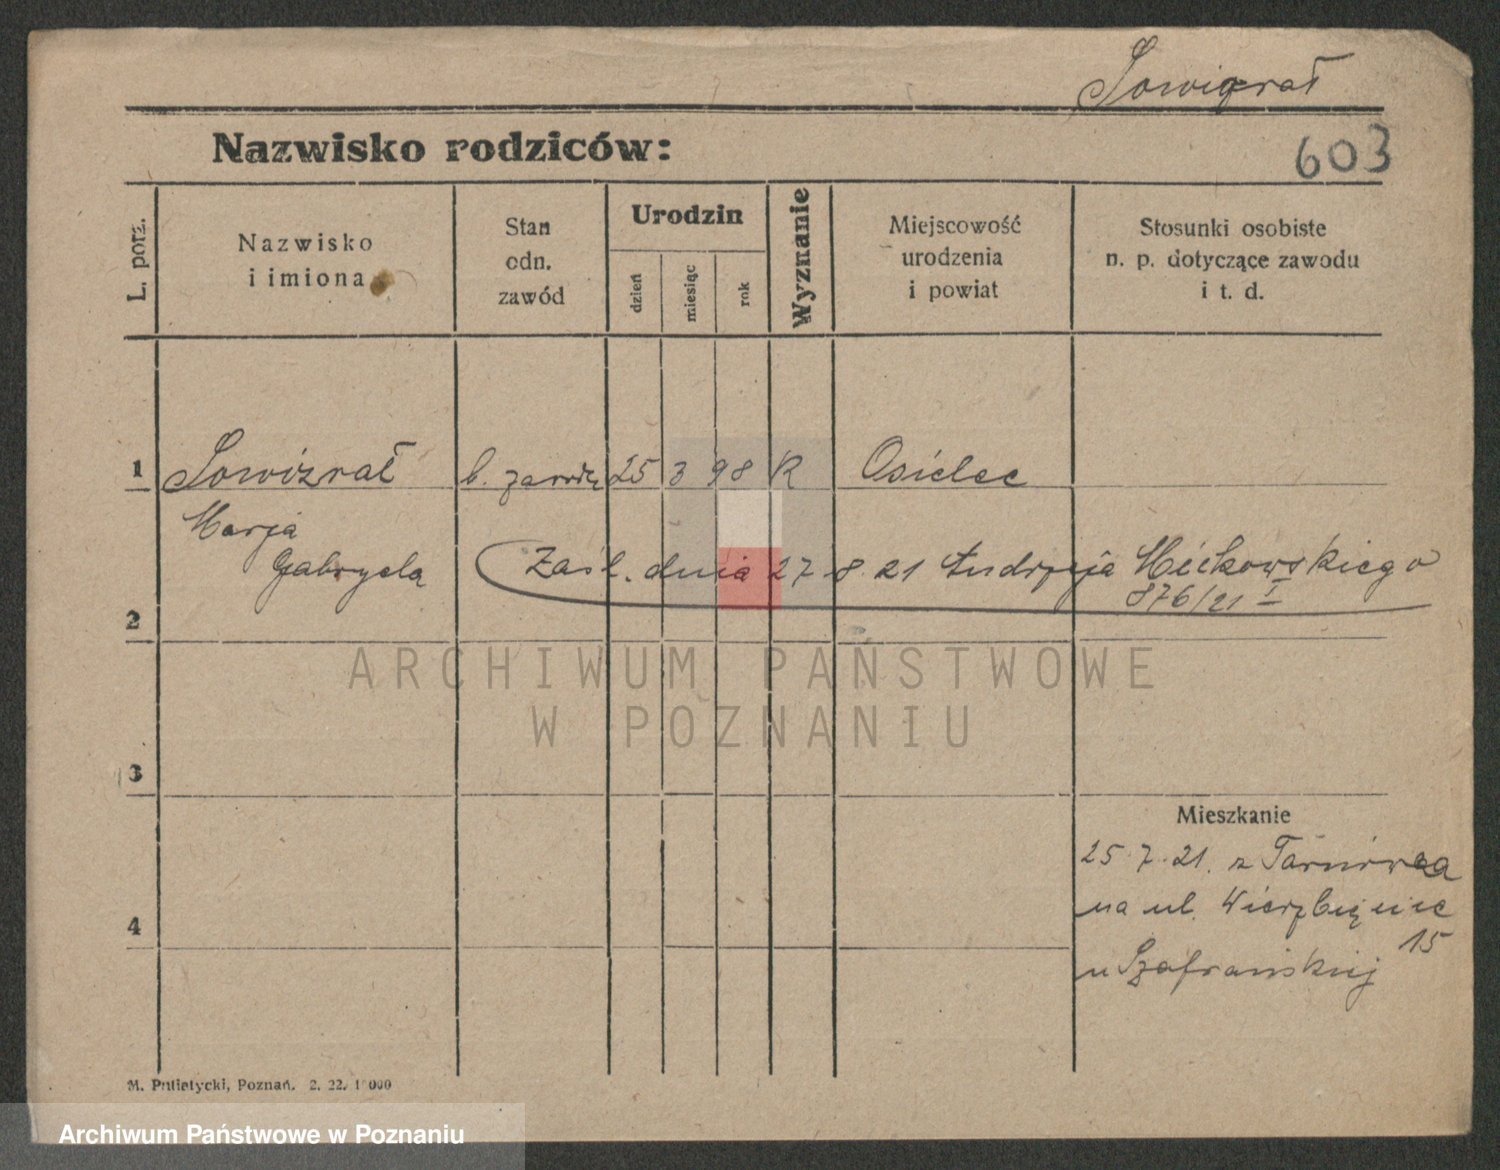 Sowiźrał
Nazwisko rodziców:
603
L. porz.
Nazwisko
i imiona
Stan
odn.
zawód
Urodzin
dzień
miesiąc
rok
Wyznanie
Miejscowość
urodzenia
i powiat
Stosunki osobiste
n. p. dotyczące zawodu
i t. d.
1 Sowiźrał b. zawodu 25 3 98 R Osielec
Marja
Gabryela
Zaśl. dnia 27 8 21 Andrzeja
876/21 I
2
ARCHIWUM PAŃSTWOWE
W POZNANIU
3
Mieszkanie
25.7.21. z Tarnowa
na ul. Wierzbięcice
15
4
u Szafrańskiej
M. Putiatycki, Poznań. 2. 22. 1000
Archiwum Państwowe w Poznaniu